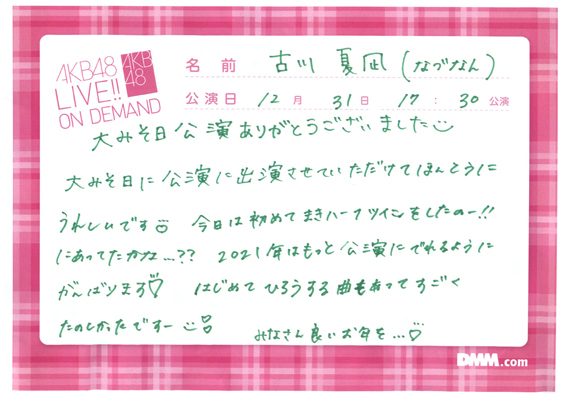 AKB48
LIVE!!
ON DEMAND
AKB
48
名前 古川 夏凪 (なづなん)
公演日 12月 31日 17:30公演
大みそ日公演ありがとうございました
大みそ日に公演に出演させていただけてほんとうに
うれしいです 今日は初めてまきハーフツインをしたのー!!
にあってたかな...?? 2021年はもっと公演にでれるように
がんばります♡ はじめてひろうする曲もあってすごく
たのしかったですー
みなさん良いお年を...♡
DMM.com